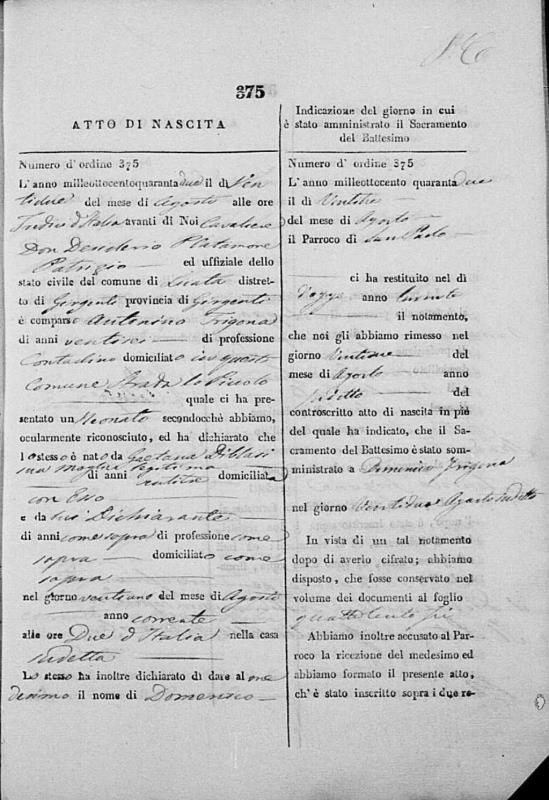 375
ATTO DI NASCITA
Numero d' ordine 375
L' anno milleottocentoquarantadue il dì Ven
tidue del mese di Agosto alle ore
Tredici d'Italia avanti di Noi Cavaliere
Don Desiderio Platamone
Patrizio ed uffiziale dello
stato civile del comune di Licata distret-
to di Girgenti provincia di Girgenti
è comparso Antonino Trigona
di anni ventisei di professione
Contadino domiciliato in questo
Comune Strada
quale ci ha pre-
sentato un Neonato secondocchè abbiamo,
ocularmente riconosciuto, ed ha dichiarato che
lo stesso è nato da Gaetana Diblasi
sua moglie legittima
di anni domiciliata
con Esso
e da lui Dichiarante
di anni come sopra di professione come
sopra domiciliato come
sopra
nel giorno ventuno del mese di Agosto
anno corrente
alle ore Due d'Italia nella casa
sudetta
Lo stesso ha inoltre dichiarato di dare al me
desimo il nome di Domenico
Indicazione del giorno in cui
è stato amministrato il Sacramento
del Battesimo
Numero d' ordine 375
L' anno milleottocento quarantadue
il dì Ventidue
del mese di Agosto
il Parroco di San Paolo
ci ha restituito nel dì
anno
il notamento,
che noi gli abbiamo rimesso nel
giorno Ventidue del
mese di Agosto anno
sudetto del
controscritto atto di nascita in piè
del quale ha indicato, che il Sa-
cramento del Battesimo è stato som-
ministrato a Domenico Trigona
nel giorno Ventidue Agosto sudetto
In vista di un tal notamento
dopo di averlo cifrato; abbiamo
disposto, che fosse conservato nel
volume dei documenti al foglio
quattrocento
Abbiamo inoltre accusato al Par-
roco la ricezione del medesimo ed
abbiamo formato il presente atto,
ch' è stato inscritto sopra i due re-